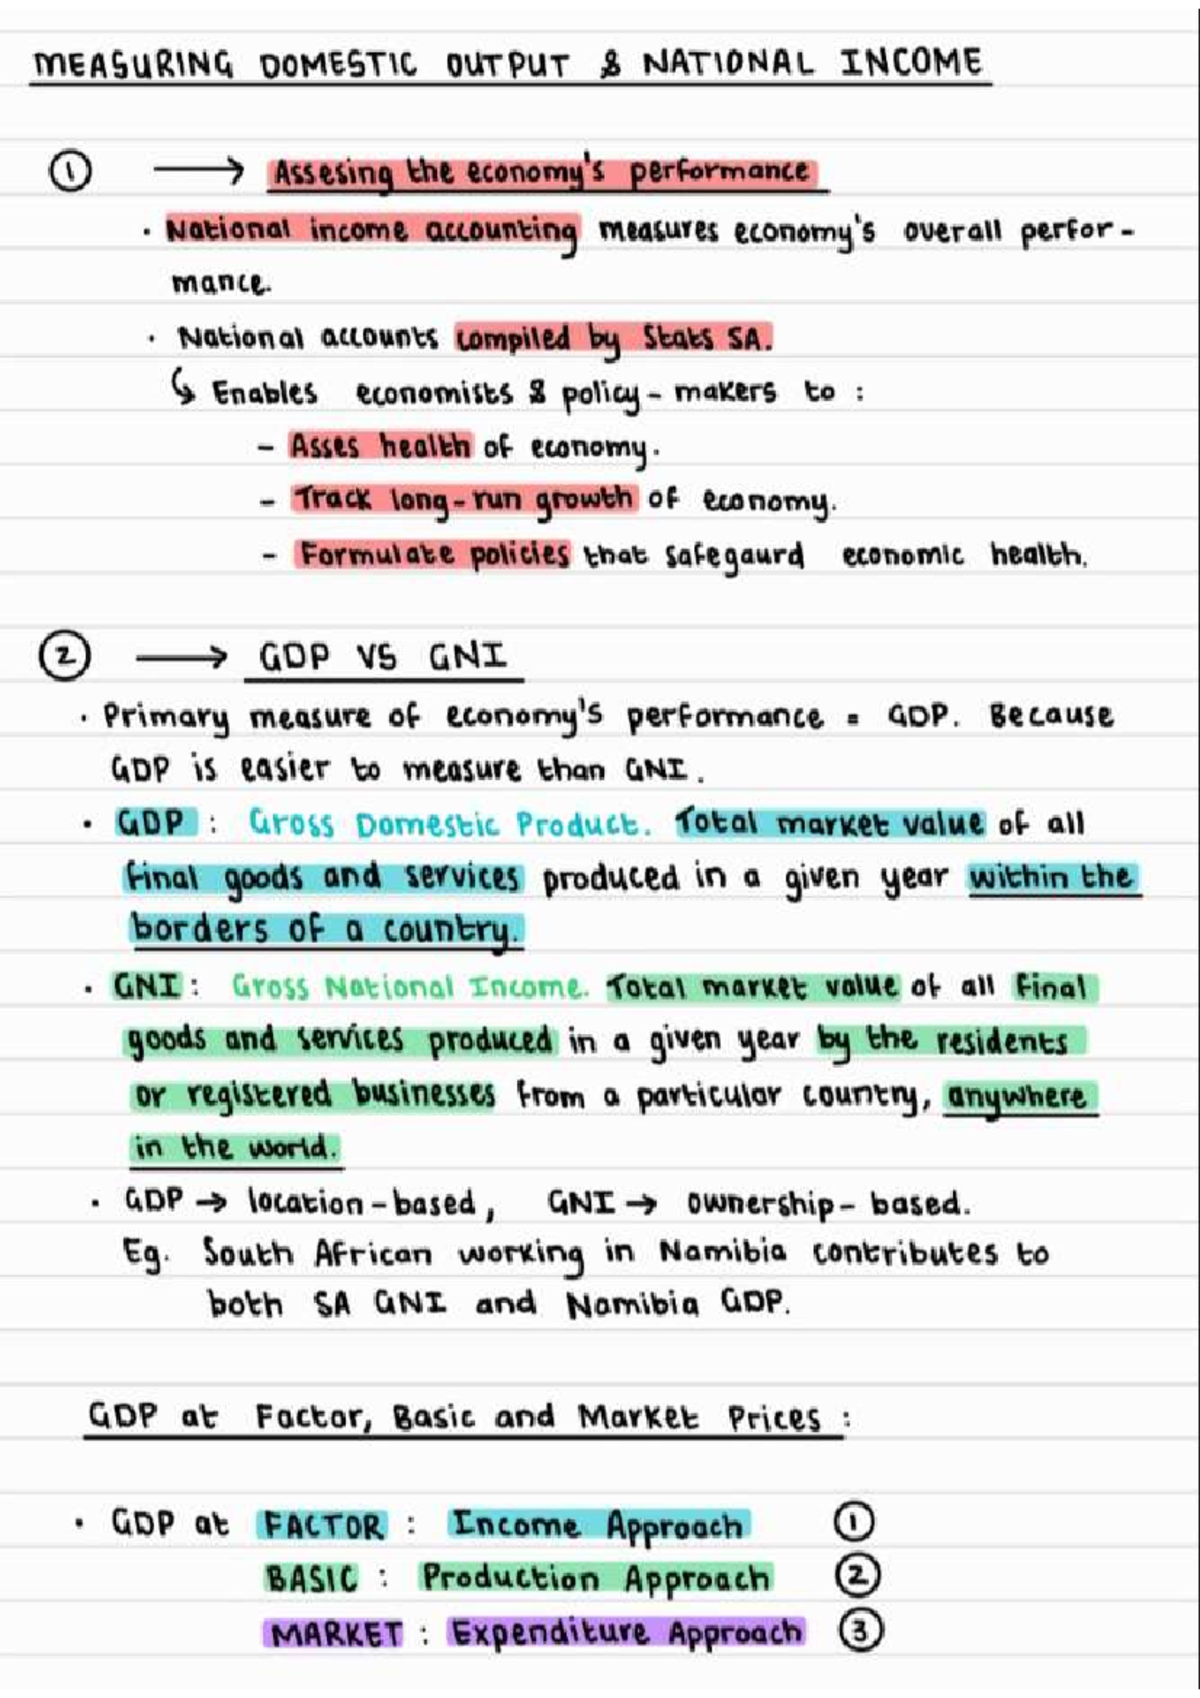 MEASURING DOMESTIC OUTPUT & NATIONAL INCOME
① → Assesing the economy's performance
· National income accounting measures economy's overall perfor-
mance.
· National accounts compiled by Stats SA.
↳ Enables economists & policy-makers to :
- Asses health of economy.
- Track long-run growth of economy.
- Formulate policies that safegaurd economic health.
② → GDP VS GNI
· Primary measure of economy's performance = GDP. Because
GDP is easier to measure than GNI.
· GDP : Gross Domestic Product. Total market value of all
final goods and services produced in a given year within the
borders of a country.
· GNI : Gross National Income. Total market value of all final
goods and services produced in a given year by the residents
or registered businesses from a particular country, anywhere
in the world.
· GDP → location-based, GNI → ownership-based.
Eg. South African working in Namibia contributes to
both SA GNI and Namibia GDP.
GDP at Factor, Basic and Market Prices :
· GDP at FACTOR : Income Approach ①
BASIC : Production Approach ②
MARKET : Expenditure Approach ③